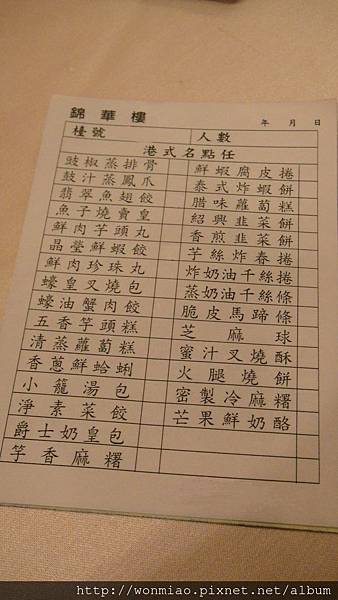 錦華樓
年 月 日
檯號 人數
港式名點任
豉椒蒸排骨 鮮蝦腐皮捲
鼓汁蒸鳳爪 泰式炸蝦餅
翡翠魚翅餃 腊味蘿蔔糕
魚子燒賣皇 紹興韭菜餅
鮮肉芋頭丸 香煎韭菜餅
晶瑩鮮蝦餃 芋絲炸春捲
鮮肉珍珠丸 炸奶油千絲捲
蠔皇叉燒包 蒸奶油千絲條
蠔油蟹肉餃 脆皮馬蹄條
五香芋頭糕 芝麻球
清蒸蘿蔔糕 蜜汁叉燒酥
香蔥鮮蛤蜊 火腿燒餅
小籠湯包 密製冷麻糬
淨素菜餃 芒果鮮奶酪
爵士奶皇包
芋香麻糬
http://wonmiao.pixnet.net/album